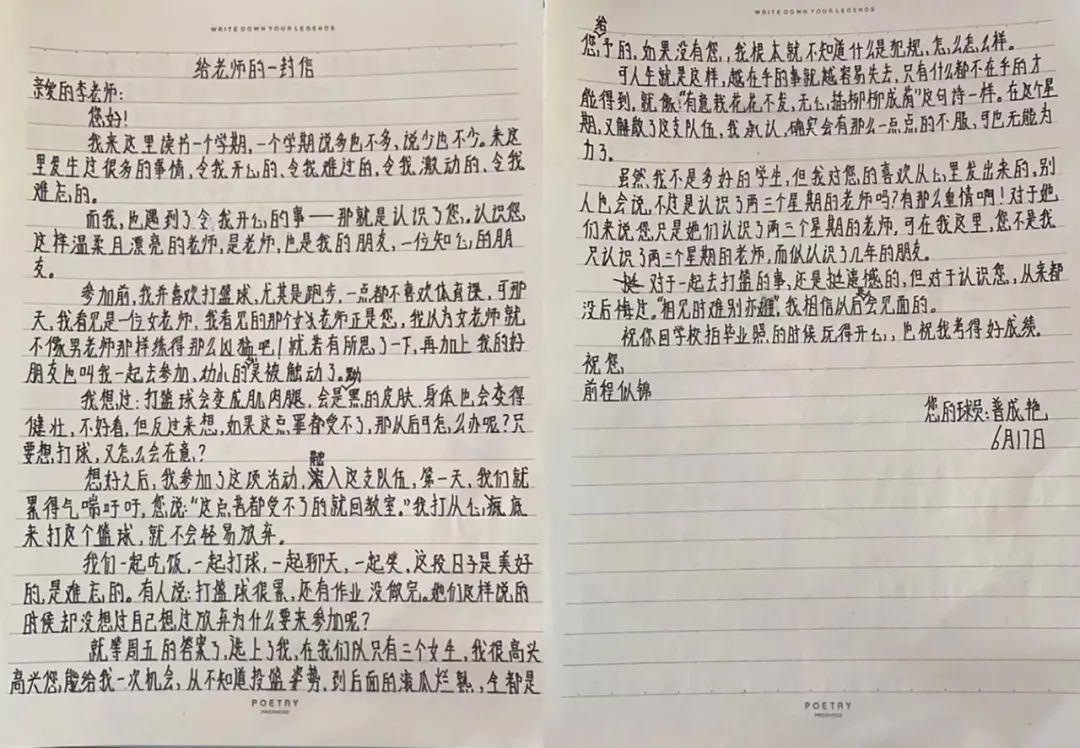 WRITE DOWN YOUR LEGENDS
给老师的一封信
亲爱的李老师:
您好!
我来这里读书一个学期,一个学期说多也不多,说少也不少。来这
里发生过很多的事情,令我开心的、令我难过的,令我激动的、令我
难忘的。
而我,也遇到了令我开心的事——那就是认识了您,认识您
这样温柔且漂亮的老师,是老师,也是我的朋友,一位知心的朋
友。
参加前,我并喜欢打篮球,尤其是跑步,一点都不喜欢体育课,可那
天,我看见是一位女老师,我看见的那个女老师正是您,我以为女老师就
不像男老师那样练得那么凶猛吧!就若有所思了一下,再加上我的好
朋友也叫我一起去参加,幼小的心灵被触动了。
我想过:打篮球会变成肌肉腿,会是黑的皮肤,身体也会变得
健壮,不好看,但反过来想,如果这点罪都受不了,那以后可怎么办呢?只
要想打球,又怎么会在意?
想好之后,我参加了这项活动,融入这支队伍,第一天,我们就
累得气喘吁吁,您说:“这点苦都受不了的就回教室。”我打从心底
来打这个篮球,就不会轻易放弃。
我们一起吃饭,一起打球,一起聊天,一起笑,这段日子是美好
的,是难忘的。有人说:打篮球很累,还有作业没做完。她们这样说的
时候却没想过自己想过放弃为什么要来参加呢?
就等周五的答案了,选上了我,在我们队只有三个女生,我很高兴
高兴您能给我一次机会,从不知道投篮姿势,到后面的滚瓜烂熟,全都是
POETRY
PRODUCED
WRITE DOWN YOUR LEGENDS
您给予的,如果没有您,我根本就不知道什么是犯规,怎么怎么样。
可人生就是这样,越在乎的事就越容易失去,只有什么都不在乎的才
能得到。就像“有意栽花花不发,无心插柳柳成荫”这句诗一样。在这个星
期,又解散了这支队伍,我承认,确实会有那么一点点的不服,可也无能为
力了。
虽然,我不是多好的学生,但我对您的喜欢从心里发出来的,别
人也会说,不过是认识了两三个星期的老师吗?有那么重情啊!对于她
们来说您只是她们认识了两三个星期的老师,可在我这里,您不是我
只认识了两三个星期的老师,而似认识了几年的朋友
对于一起去打篮的事,还是挺遗憾的,但对于认识您,从来都
没后悔过。“相见时难别亦难”,我相信以后会见面的。
祝你回学校拍毕业照的时候玩得开心,也祝我考得好成绩。
祝您,
前程似锦
您的球员:普成艳
6月17日
POETRY
PRODUCED